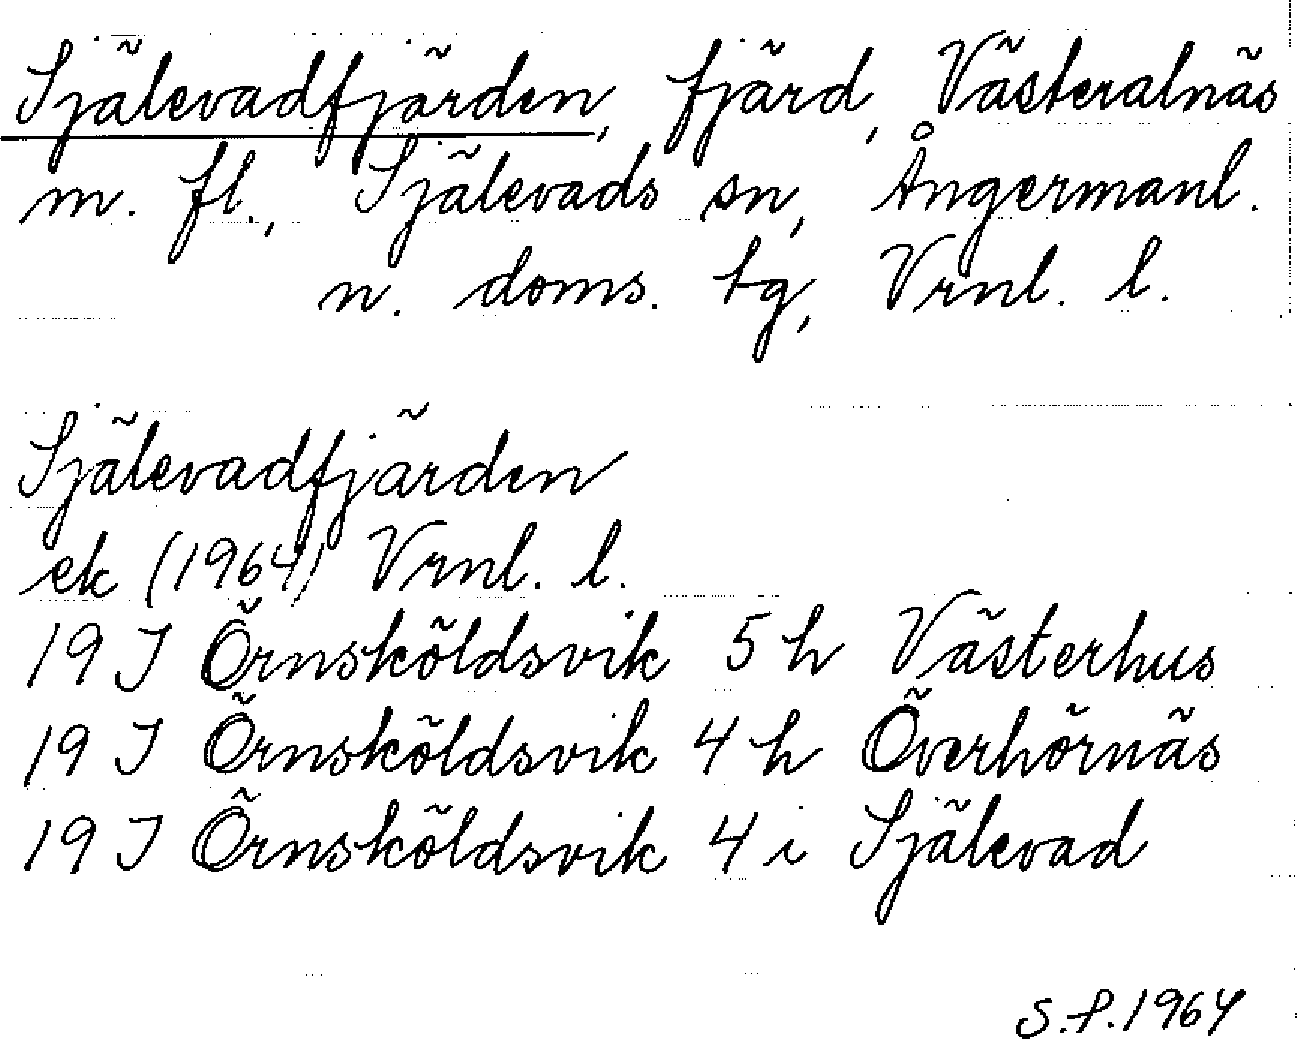 Själevadfjärden, fjärd, Västeralnäs
m. fl., Själevads sn, Ångermanl.
n. doms. tg, Vrnl. l.
Själevadfjärden
ek (1964) Vrnl. l.
19 J Örnsköldsvik 5 h Västerhus
19 J Örnsköldsvik 4 h Överhörnäs
19 J Örnsköldsvik 4 i Själevad
S.P. 1964